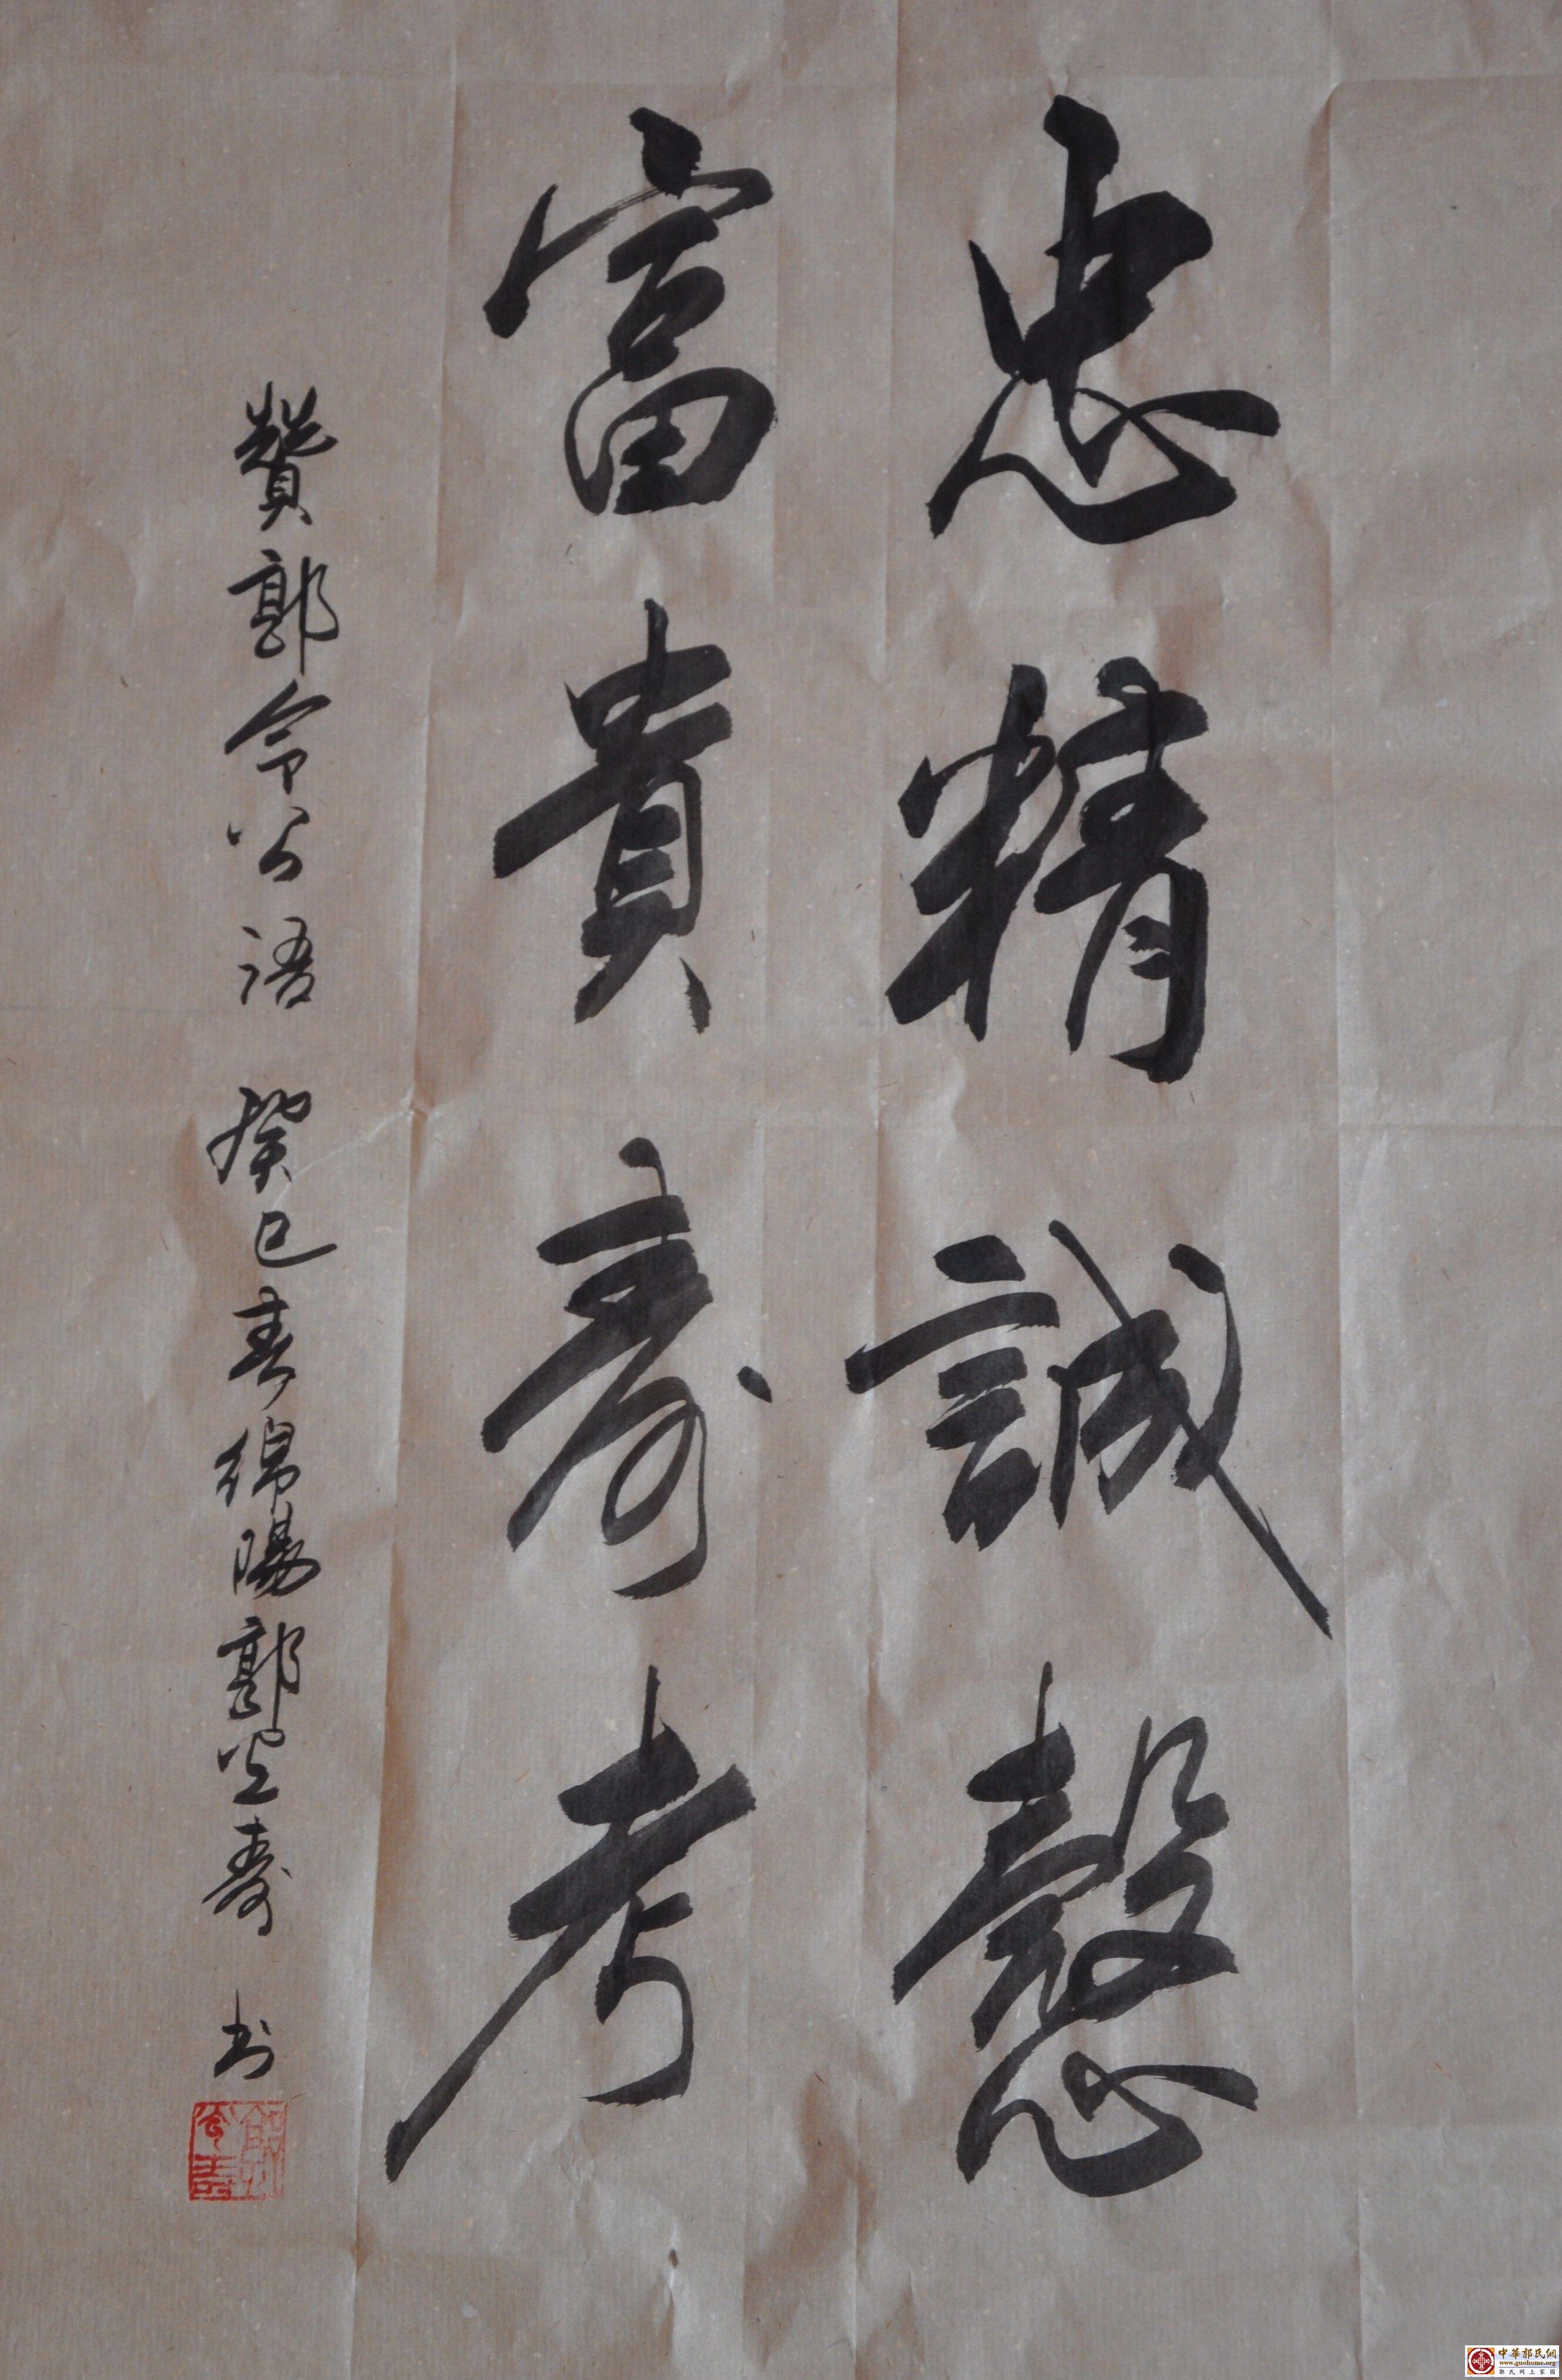 忠精誠慤
富貴壽考
贊郭令公语 癸巳春绵陽郭云壽 书
中華郭氏網
www.guohome.org
郭氏网上家園